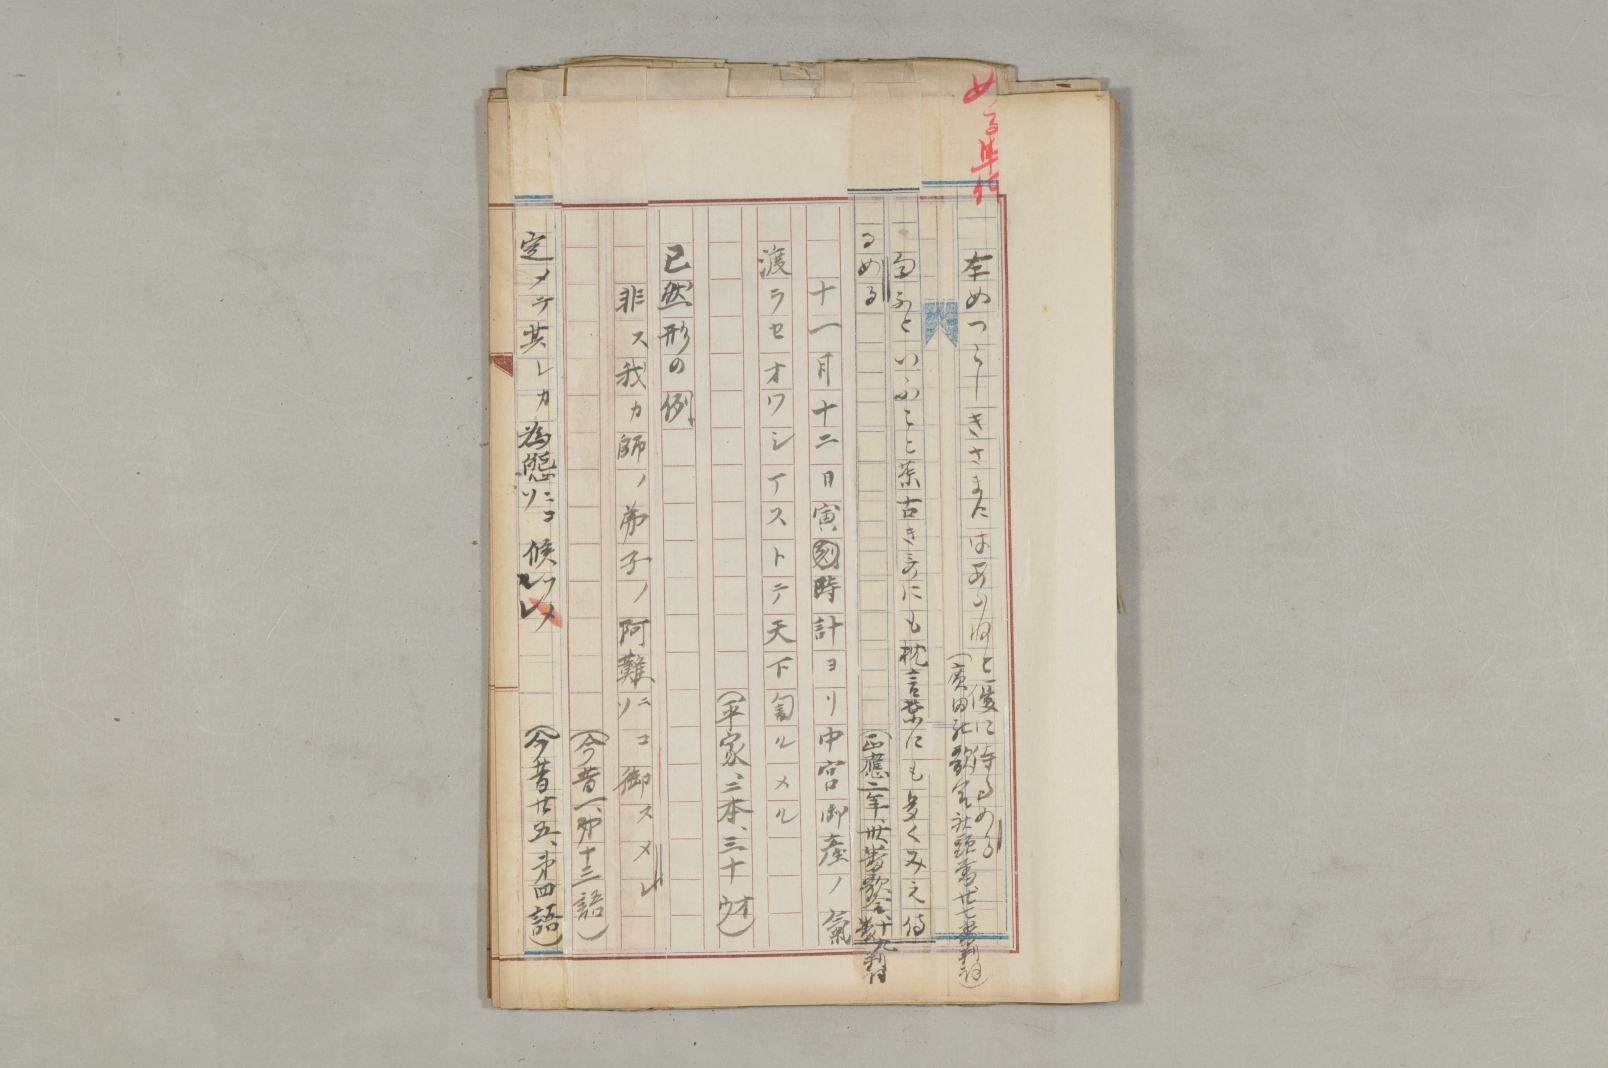 める準体
左めつらしきさまにはあらねと優に侍るめる
(廣田社歌合社頭雪廿七番判詞)
句ふといふこと葉古き哥にも枕言葉にも多くみえ侍
るめる
(正應二年、卅番歌合、十九番判詞
十一月十二日寅刻時計ヨリ中宮御産ノ氣
渡ラセオワシマストテ天下匐ルメル
(平家、二本、三十オウ)
已然形の例、
非ス我カ師ノ弟子ノ阿難ニコソ御スメレ
(今昔一、第十三語)
定メテ其レカ為態ニコソ候フメレ
(今昔廿五、第四語)